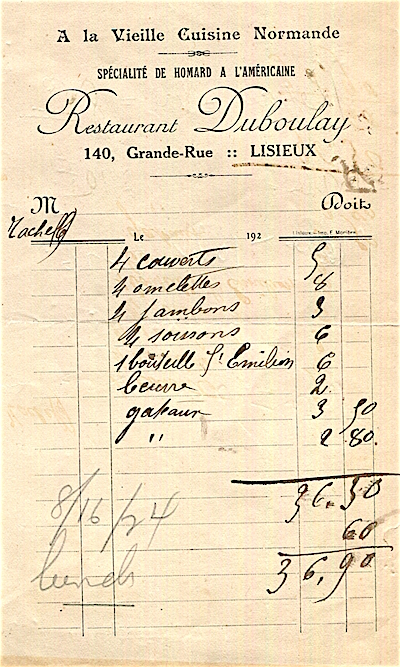 A la Vieille Cuisine Normande
SPÉCIALITÉ DE HOMARD A L'AMÉRICAINE
Restaurant Duboulay
140, Grande-Rue :: LISIEUX
M Doit
Le 192
4 couverts 5
4 omelettes 8
4 jambons 9
4 6
1 bouteille St Emilion 6
beurre 2
gateaux 3 50
" 2 80
36.30
60
36,90
8/16/24
lunch